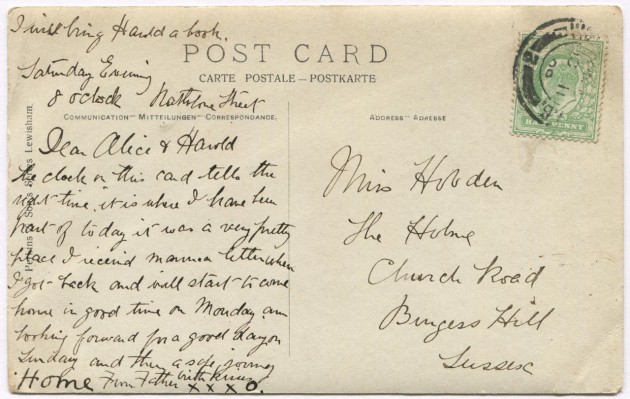 I will bring Harold a book.
POST CARD
CARTE POSTALE – POSTKARTE
Saturday Evening
8 oclock Street
COMMUNICATION – MITTEILUNGEN – CORRESPONDANCE.
ADDRESS – ADRESSE
Dear Alice & Harold
the clock on this card tells the
right time, it is where I have been
part of today it was a very pretty
place I received mamma letter when
I got back and will start to come
home in good time on Monday am
looking forward for a good day on
Sunday and then a safe journey
Home From Father with kisses
x x x o.
Miss Hobden
The Holme
Church Road
Burgess Hill
Sussex
HALFPENNY
Perkins Sons Lewisham.